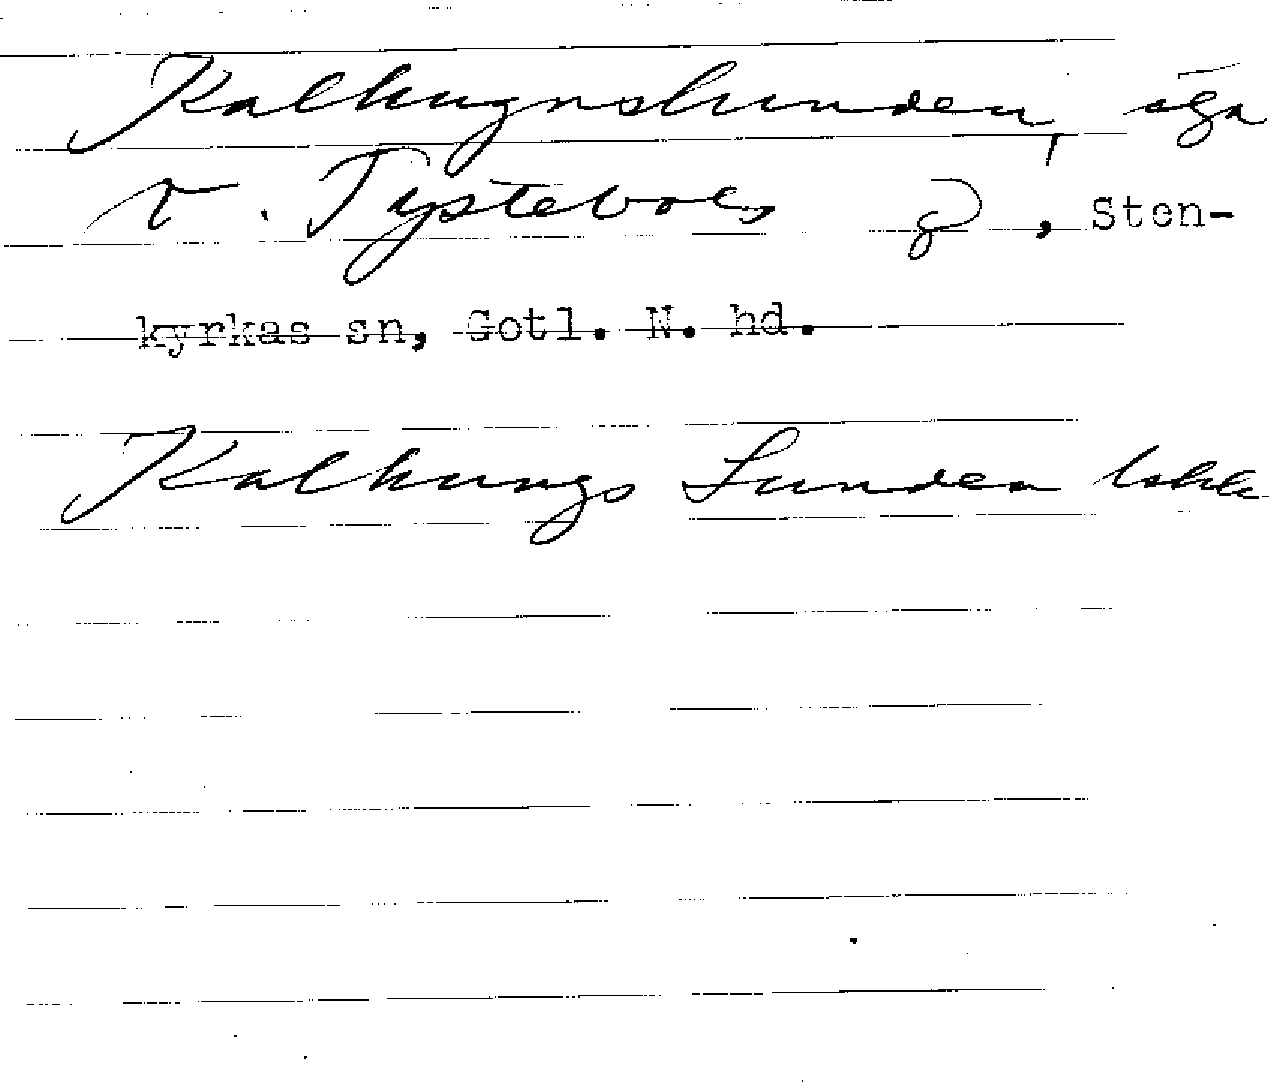 Kalkugnslunden, äga
v. Tystebols g, Sten-
kyrkas sn, Gotl. N. hd.
Kalkungs Lunden